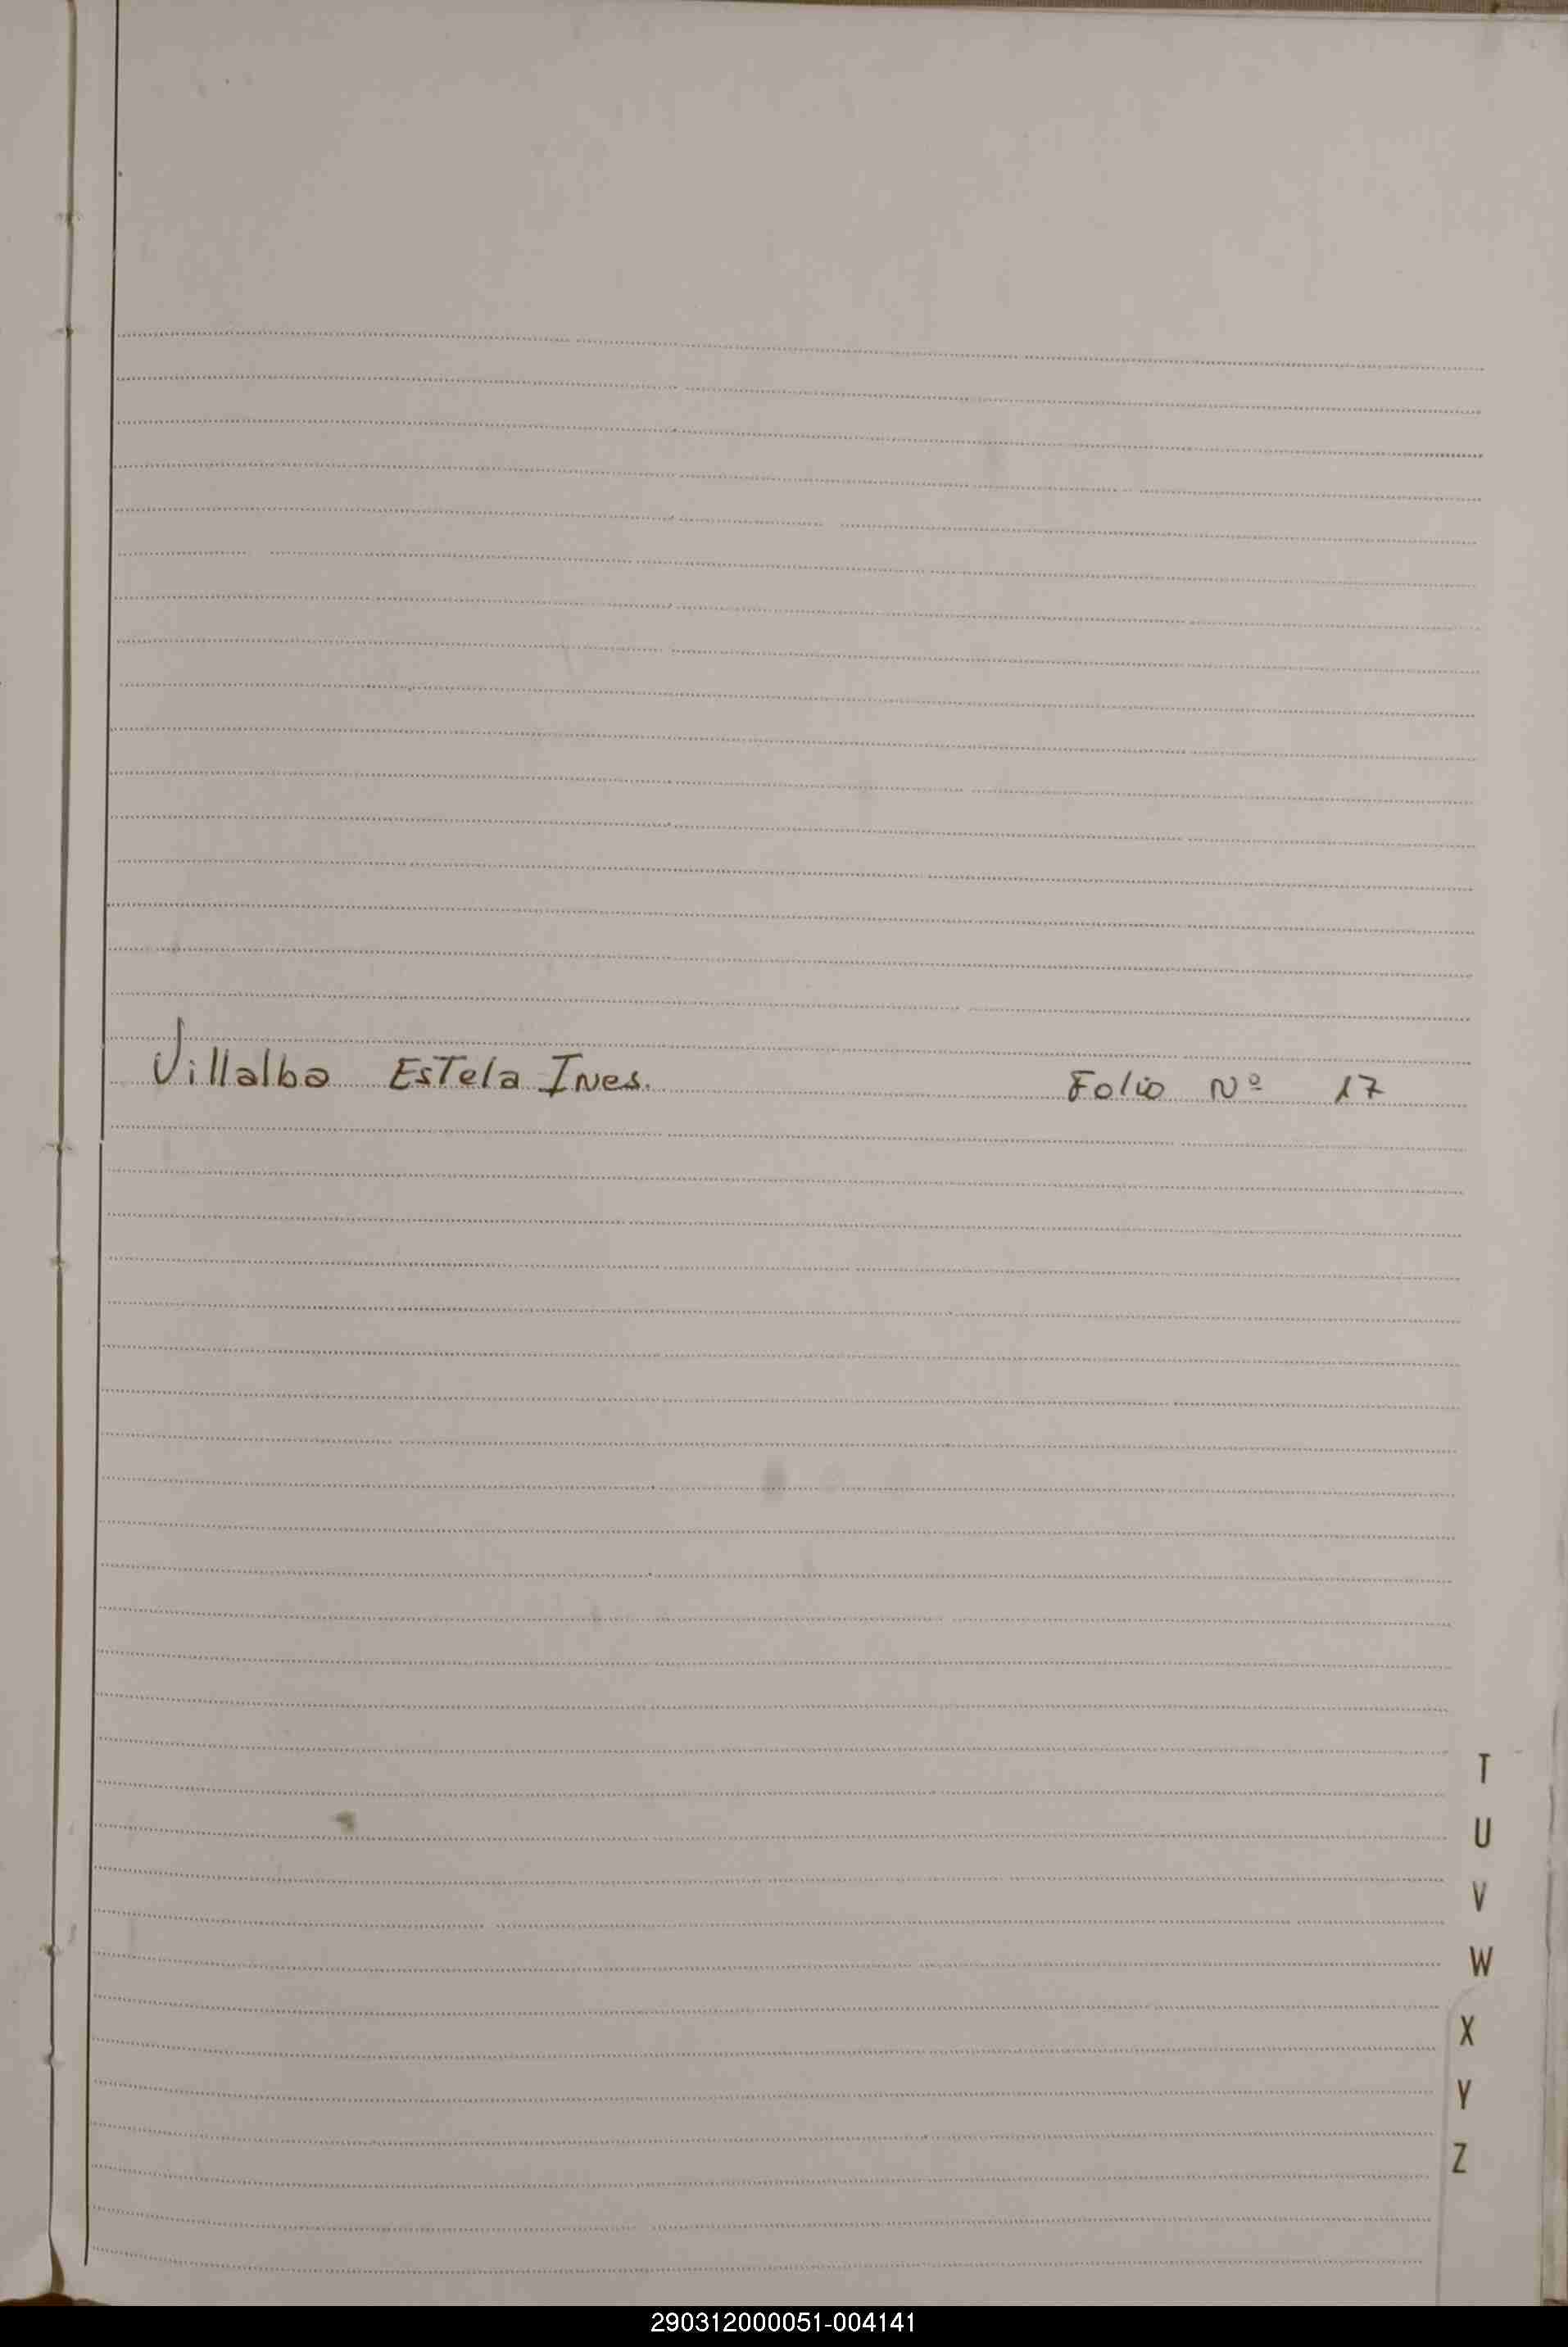 Villalba EsTela Ines.	Folio Nº 17
T
U
V
W
X
Y
Z
290312000051-004141